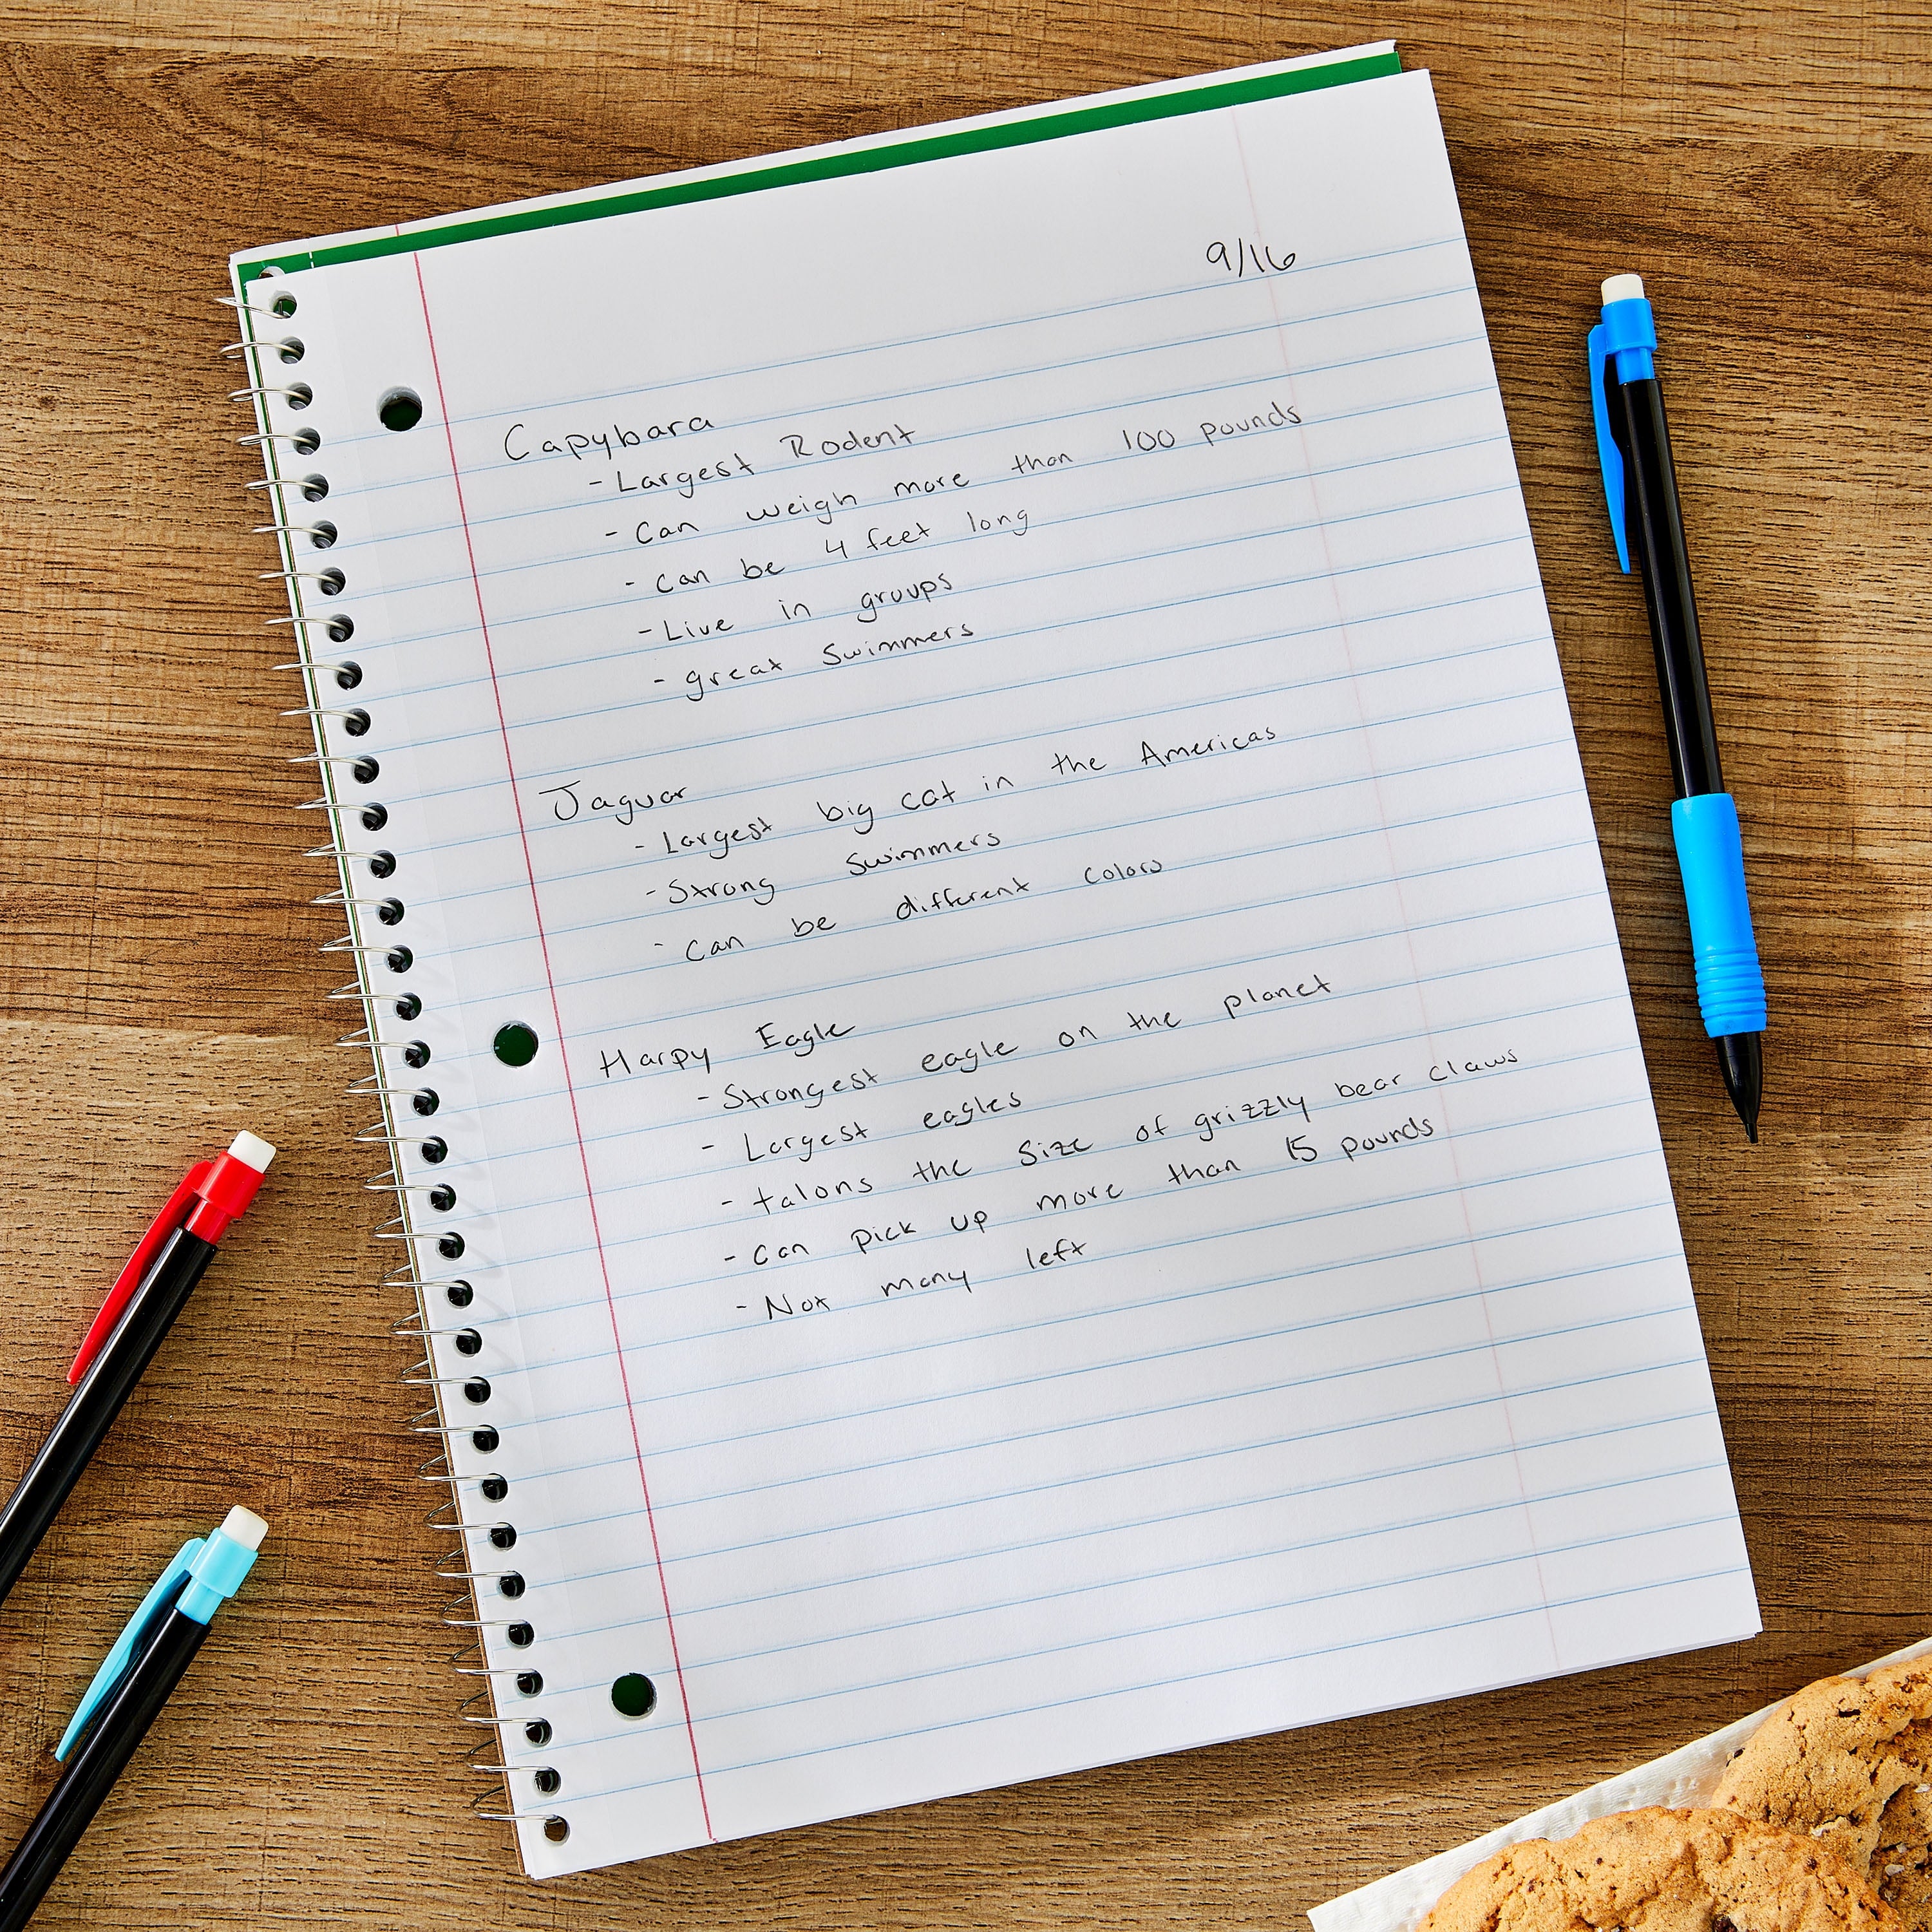 9/16
Capybara
- Largest Rodent
- Can weigh more than 100 pounds
- can be 4 feet long
- Live in groups
- great Swimmers
Jaguar
- Largest big cat in the Americas
- Strong Swimmers
- can be different colors
Harpy Eagle
- Strongest eagle on the planet
- Largest eagles
- talons the size of grizzly bear claws
- can pick up more than 15 pounds
- Not many left